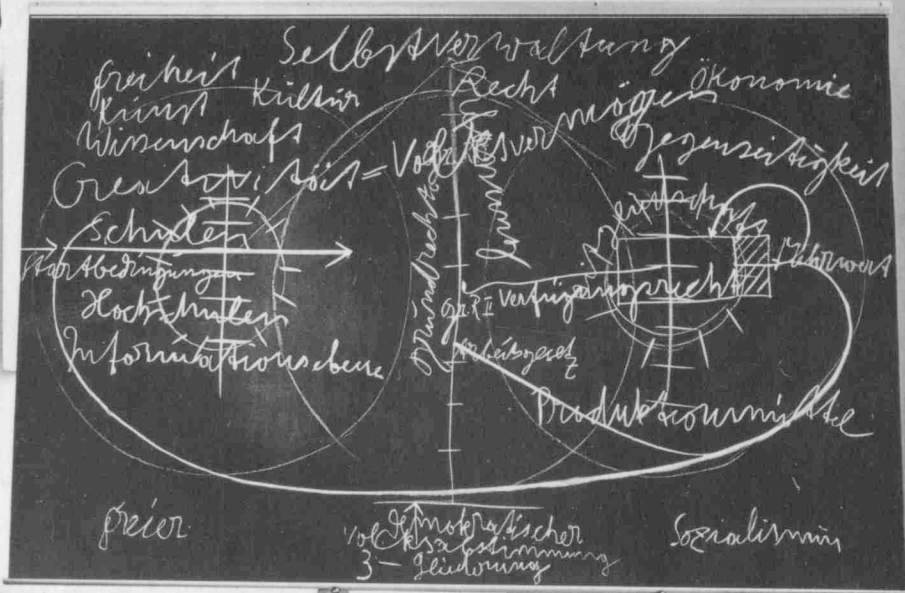 Selbstverwaltung
freiheit
Kunst Kultur
Wissenschaft
Recht
Ökonomie
Creativität = Volksvermögen
Gegenseitigkeit
Schulen
Startbedingungen
Hochschulen
Informationsebene
Grundrechte
Mehrwert
Verfügungsrecht
Arbeitsgesetz
Produktionsmittel
freier
demokratischer
Sozialismus
Volksabstimmung
3-Gliederung